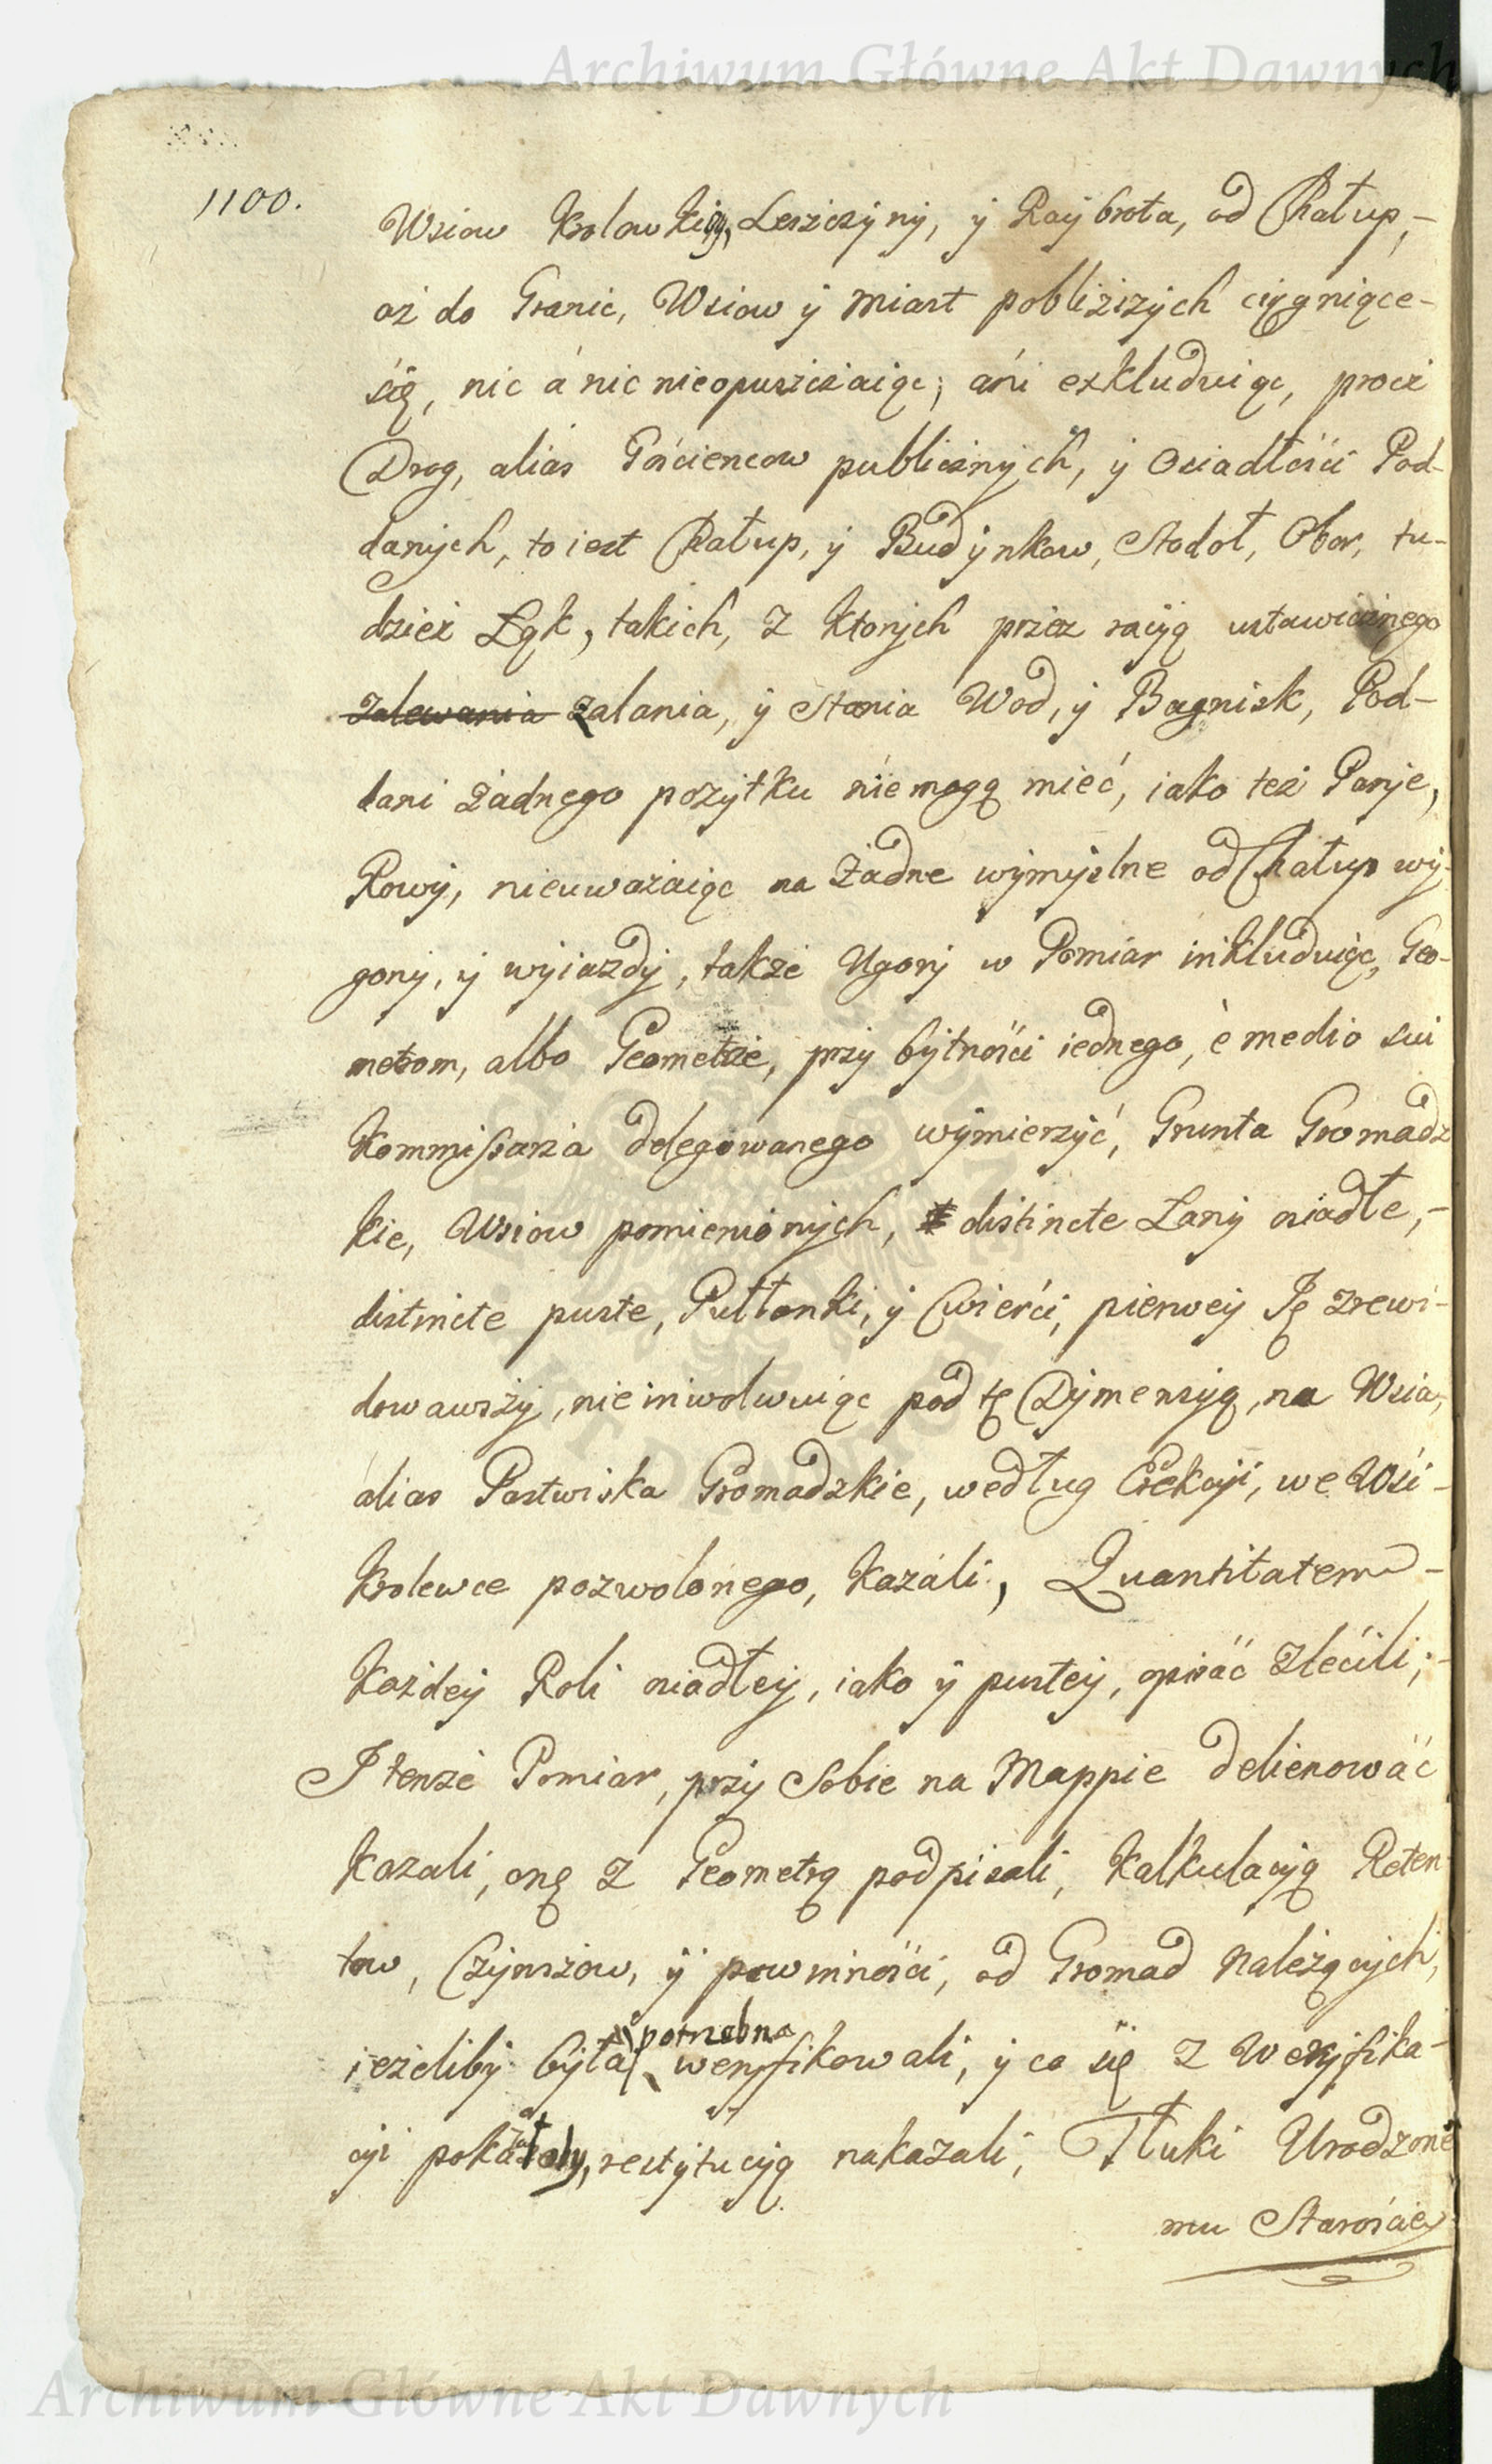 Archiwum Główne Akt Dawnych
1100.
Wsiow Krolowkiy, Leszczyny, y Raybrota, od Chałup,-
aż do Granic, Wsiow y Miast pobliższych ciągniące-
się, nic á nic nieopuszczaiąc, áni exkluduiąc, procz
Drog, alias Gościencow publicznych, y Osiadłości Pod-
danych, to iest Chałup, y Budynkow, Stodoł, Obor, tu-
dzież Łąk, takich, z ktorych przez racyą ustawicznego
zalewania zalania, y Stania Wod, y Bagnisk, Pod-
dani żadnego pożytku niemogą mieć, iako też Parye,
Rowy, nieuważaiąc na żadne wymyślne od Chałup wy-
gony, y wyiazdy, także Ugory w Pomiar inkluduiąc, Geo-
metrom, albo Geometrze, przy bytności iednego, è medio sui
Kommissarza delegowanego wymierzyć, Grunta Gromadz
kie, Wsiow pomienionych, distincte Łany osiadłe,-
distincte puste, Pułłanki, y Cwierci, pierwey Ię zrewi-
dowawszy, nieinwolwuiąc pod tę Dymensyą, na Wsia,
alias Pastwiska Gromadzkie, według Erekcyi, we Wsi-
Krolewce pozwolonego, kazáli, Quantitatem-
Każdey Roli osiadłey, iako y pustey, opisać zlecili;-
I tenże Pomiar, przy Sobie na Mappie delienować
Kazali, onę z Geometrą podpisali, Kalkulacyą Reten-
tow, Czynszow, y powinności, od Gromad należących,
potrzebna
ieżeliby była weryfikowali, y co się z Weryfika-
cyi pokazałoby, restytucyą nakazali, Tłuki Urodzone
mu Starościey
Archiwum Główne Akt Dawnych